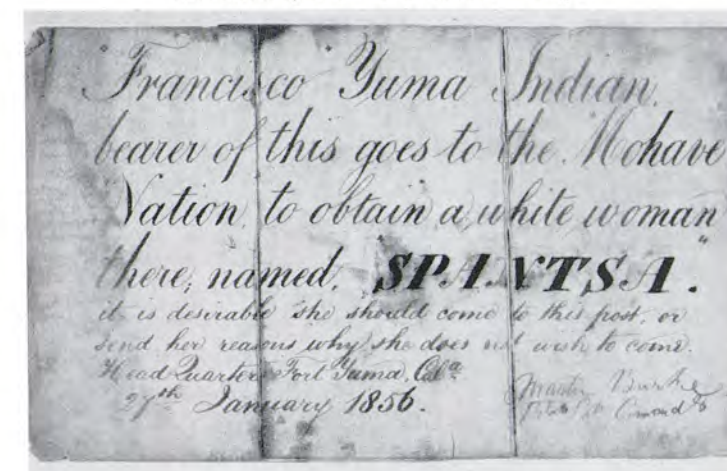 "Francisco" Yuma Indian,
bearer of this goes to the Mohave
Nation, to obtain a white woman
there, named, SPANTSA."
it is desirable she should come to this post, or
send her reasons why she does not wish to come.
Head Quarters Fort Yuma, Cala
27th January 1856.
Martin Burke